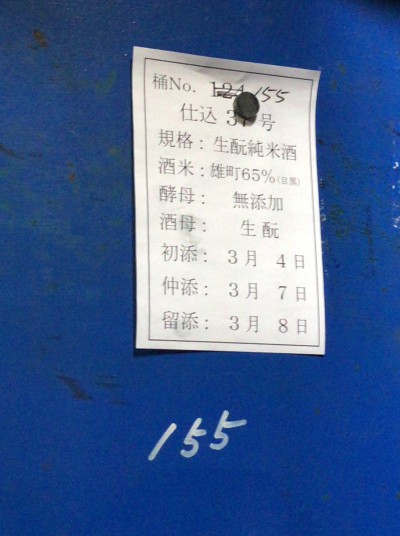 桶No. 124 155
仕込 号
規格：生酛純米酒
酒米：雄町65%
酵母： 無添加
酒母： 生酛
初添： 3月 4日
仲添： 3月 7日
留添： 3月 8日
155